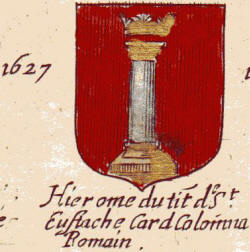 1627
Hierome du tit̄ d. St
Eustache Card Colomna
Romain,